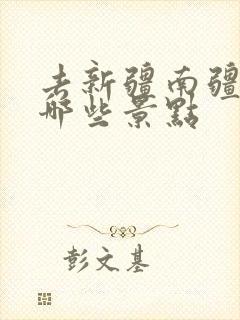 去新疆南疆
哪些景點
彭文基